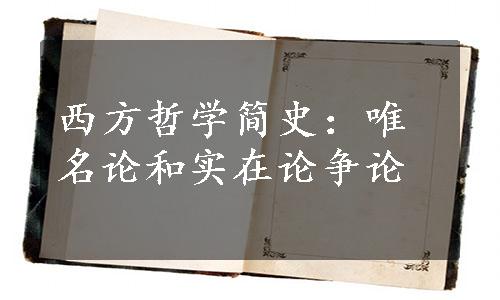 西方哲学简史：唯
名论和实在论争论